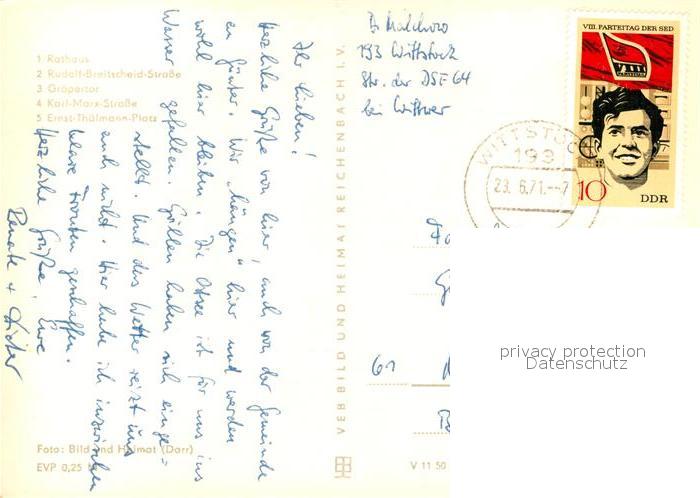 1 Rathaus
2 Rudolf-Breitscheid-Straße
3 Gröpertor
4 Karl-Marx-Straße
5 Ernst-Thälmann-Platz
Ihr Lieben!
Herzliche Grüße von hier, auch von der Gemeinde
an Günter. Wir „hängen“ hier und werden
wohl hier bleiben. Die Ostsee ist für uns ins
Wasser gefallen. Grillen haben sich einge=
stellt. Und das Wetter reizt uns
auch nicht. Hier habe ich inzwischen
klare Fronten geschaffen.
Herzliche Grüße, Eure
Renate + Dieter
Foto: Bild und Heimat (Darr)
EVP 0,25 M
VEB BILD UND HEIMAT REICHENBACH I. V.
V 11 50
193 Wittstock
Str. der DSF 64
bei Wittwer
VIII. PARTEITAG DER SED
10
DDR
WITTSTOCK
193
23. 6. 71.--7
61
privacy protection
Datenschutz